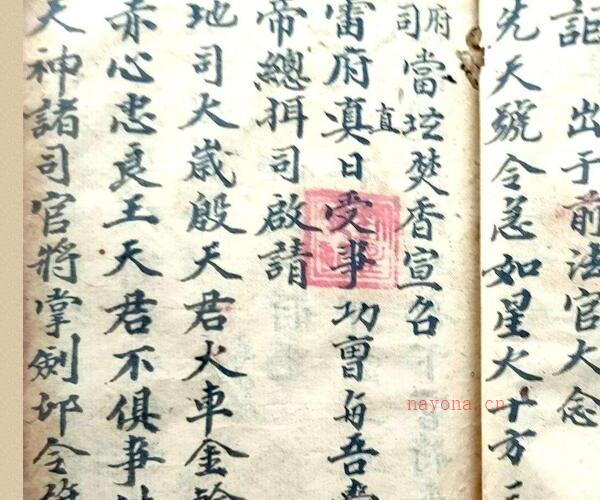 訖 出于前法官大念
先天號令急如星火十方
府司當坛焚香宣名
雷府真直日受事功曹与吾
帝總揖司啟請
地司大歲殷天君火車金輪
赤心忠良王天君不俱事
天神諸司官將掌劍印令
nayona.cn